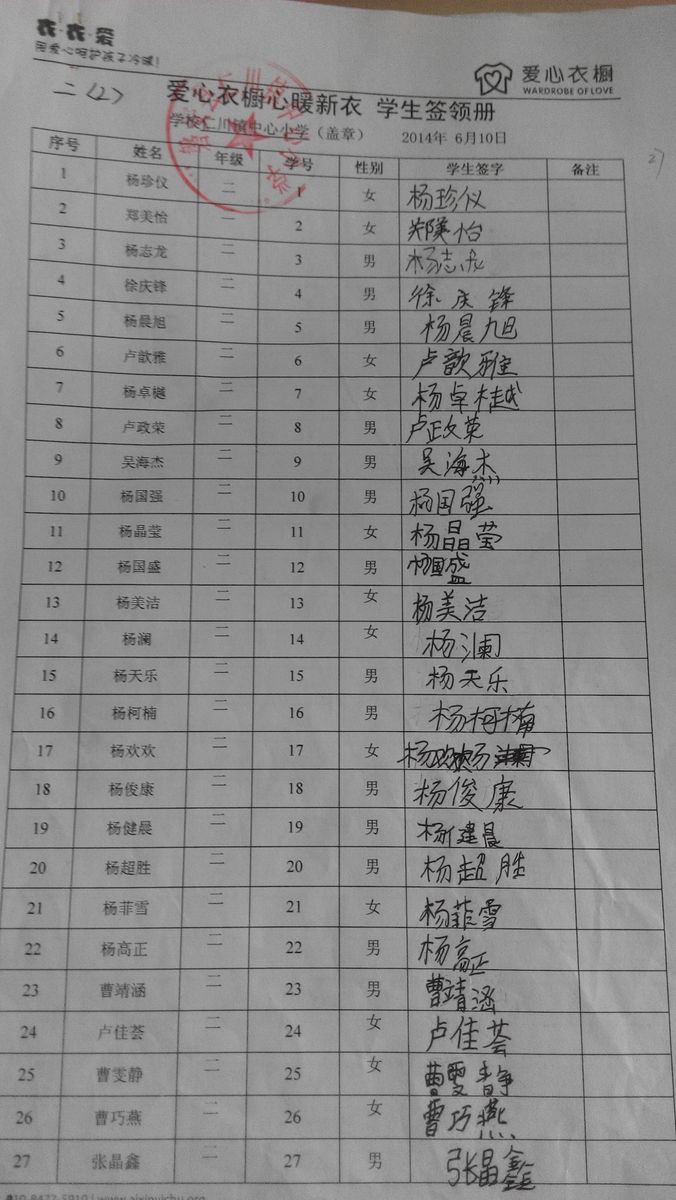 衣·衣·爱
用爱心呵护孩子冷暖!
爱心衣橱
WARDROBE OF LOVE
二〈2〉
爱心衣橱心暖新衣 学生签领册
学校仁川镇中心小学（盖章） 2014年 6月10日
序号 姓名 年级 学号 性别 学生签字 备注
1 杨珍仪 二 1 女 杨珍仪
2 郑美怡 二 2 女 郑美怡
3 杨志龙 二 3 男 杨志龙
4 徐庆锋 二 4 男 徐庆锋
5 杨晨旭 二 5 男 杨晨旭
6 卢歆雅 二 6 女 卢歆雅
7 杨卓樾 二 7 女 杨卓樾
8 卢政荣 二 8 男 卢政荣
9 吴海杰 二 9 男 吴海杰
10 杨国强 二 10 男 杨国强
11 杨晶莹 二 11 女 杨晶莹
12 杨国盛 二 12 男 杨国盛
13 杨美洁 二 13 女 杨美洁
14 杨澜 二 14 女 杨澜
15 杨天乐 二 15 男 杨天乐
16 杨柯楠 二 16 男 杨柯楠
17 杨欢欢 二 17 女 杨欢欢
18 杨俊康 二 18 男 杨俊康
19 杨健晨 二 19 男 杨健晨
20 杨超胜 二 20 男 杨超胜
21 杨菲雪 二 21 女 杨菲雪
22 杨高正 二 22 男 杨高正
23 曹靖涵 二 23 男 曹靖涵
24 卢佳荟 二 24 女 卢佳荟
25 曹雯静 二 25 女 曹雯静
26 曹巧燕 二 26 女 曹巧燕
27 张晶鑫 二 27 男 张晶鑫